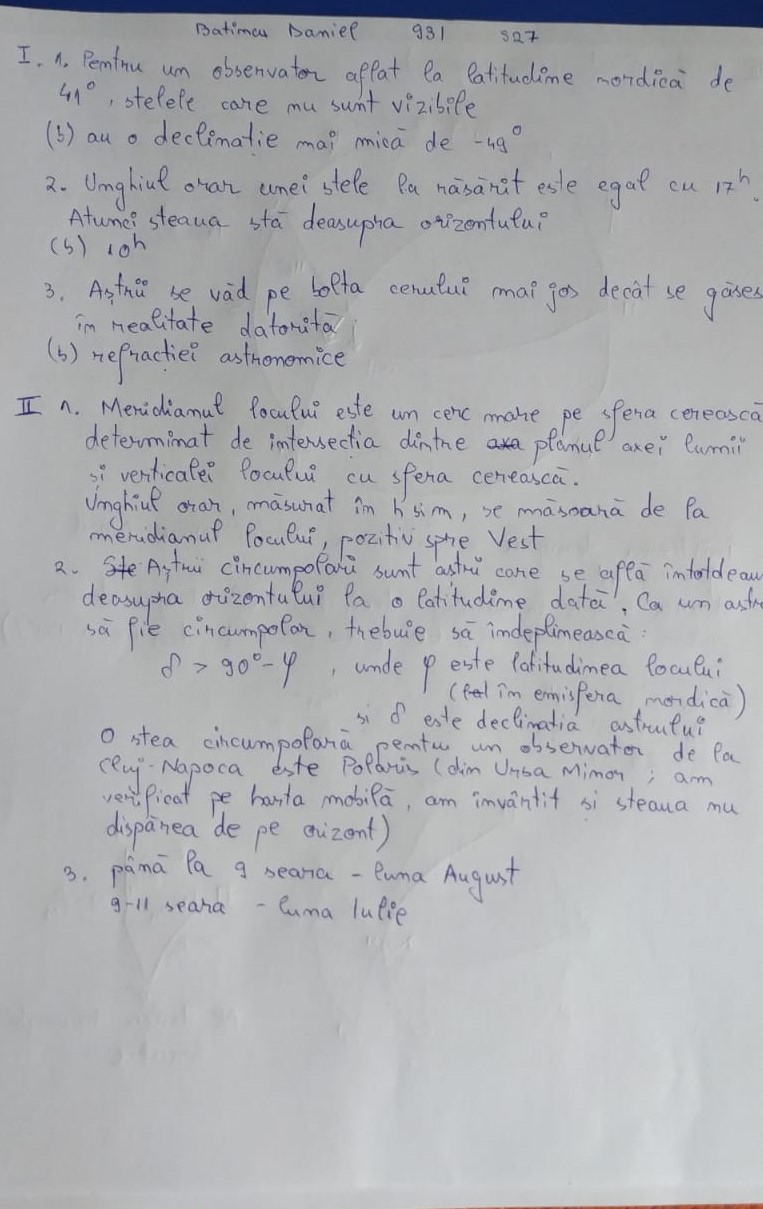 Batimcu Daniel 931 S27
I. 1. Pentru un observator aflat la latitudine nordică de
41°, stelele care nu sunt vizibile
(b) au o declinatie mai mică de -49°
2. Unghiul orar unei stele la răsărit este egal cu 17h.
Atunci steaua stă deasupra orizontului
(b) 10h
3. Aștrii se văd pe bolta cerului mai jos decât se găses
în realitate datorită
(b) refractiei astronomice
II 1. Meridianul locului este un cerc mare pe sfera cerească
determinat de intersectia dintre axa planul axei lumii
și verticalei locului cu sfera cerească.
Unghiul orar, măsurat în h sim, se măsoară de la
meridianul locului, pozitiv spre Vest
2. Ste Aștrii circumpolari sunt aștri care se află întotdeau
deasupra orizontului la o latitudine dată. Ca un astr
să fie circumpolar, trebuie să îndeplinească:
δ > 90° - φ, unde φ este latitudinea locului
(în emisfera nordică)
si δ este declinatia astrului
O stea circumpolară pentru un observator de la
Cluj-Napoca este Polaris (din Ursa Minor; am
verificat pe harta mobilă, am învârtit si steaua nu
dispărea de pe orizont)
3. până la 9 seara - luna August
9-11 seara - luna Iulie